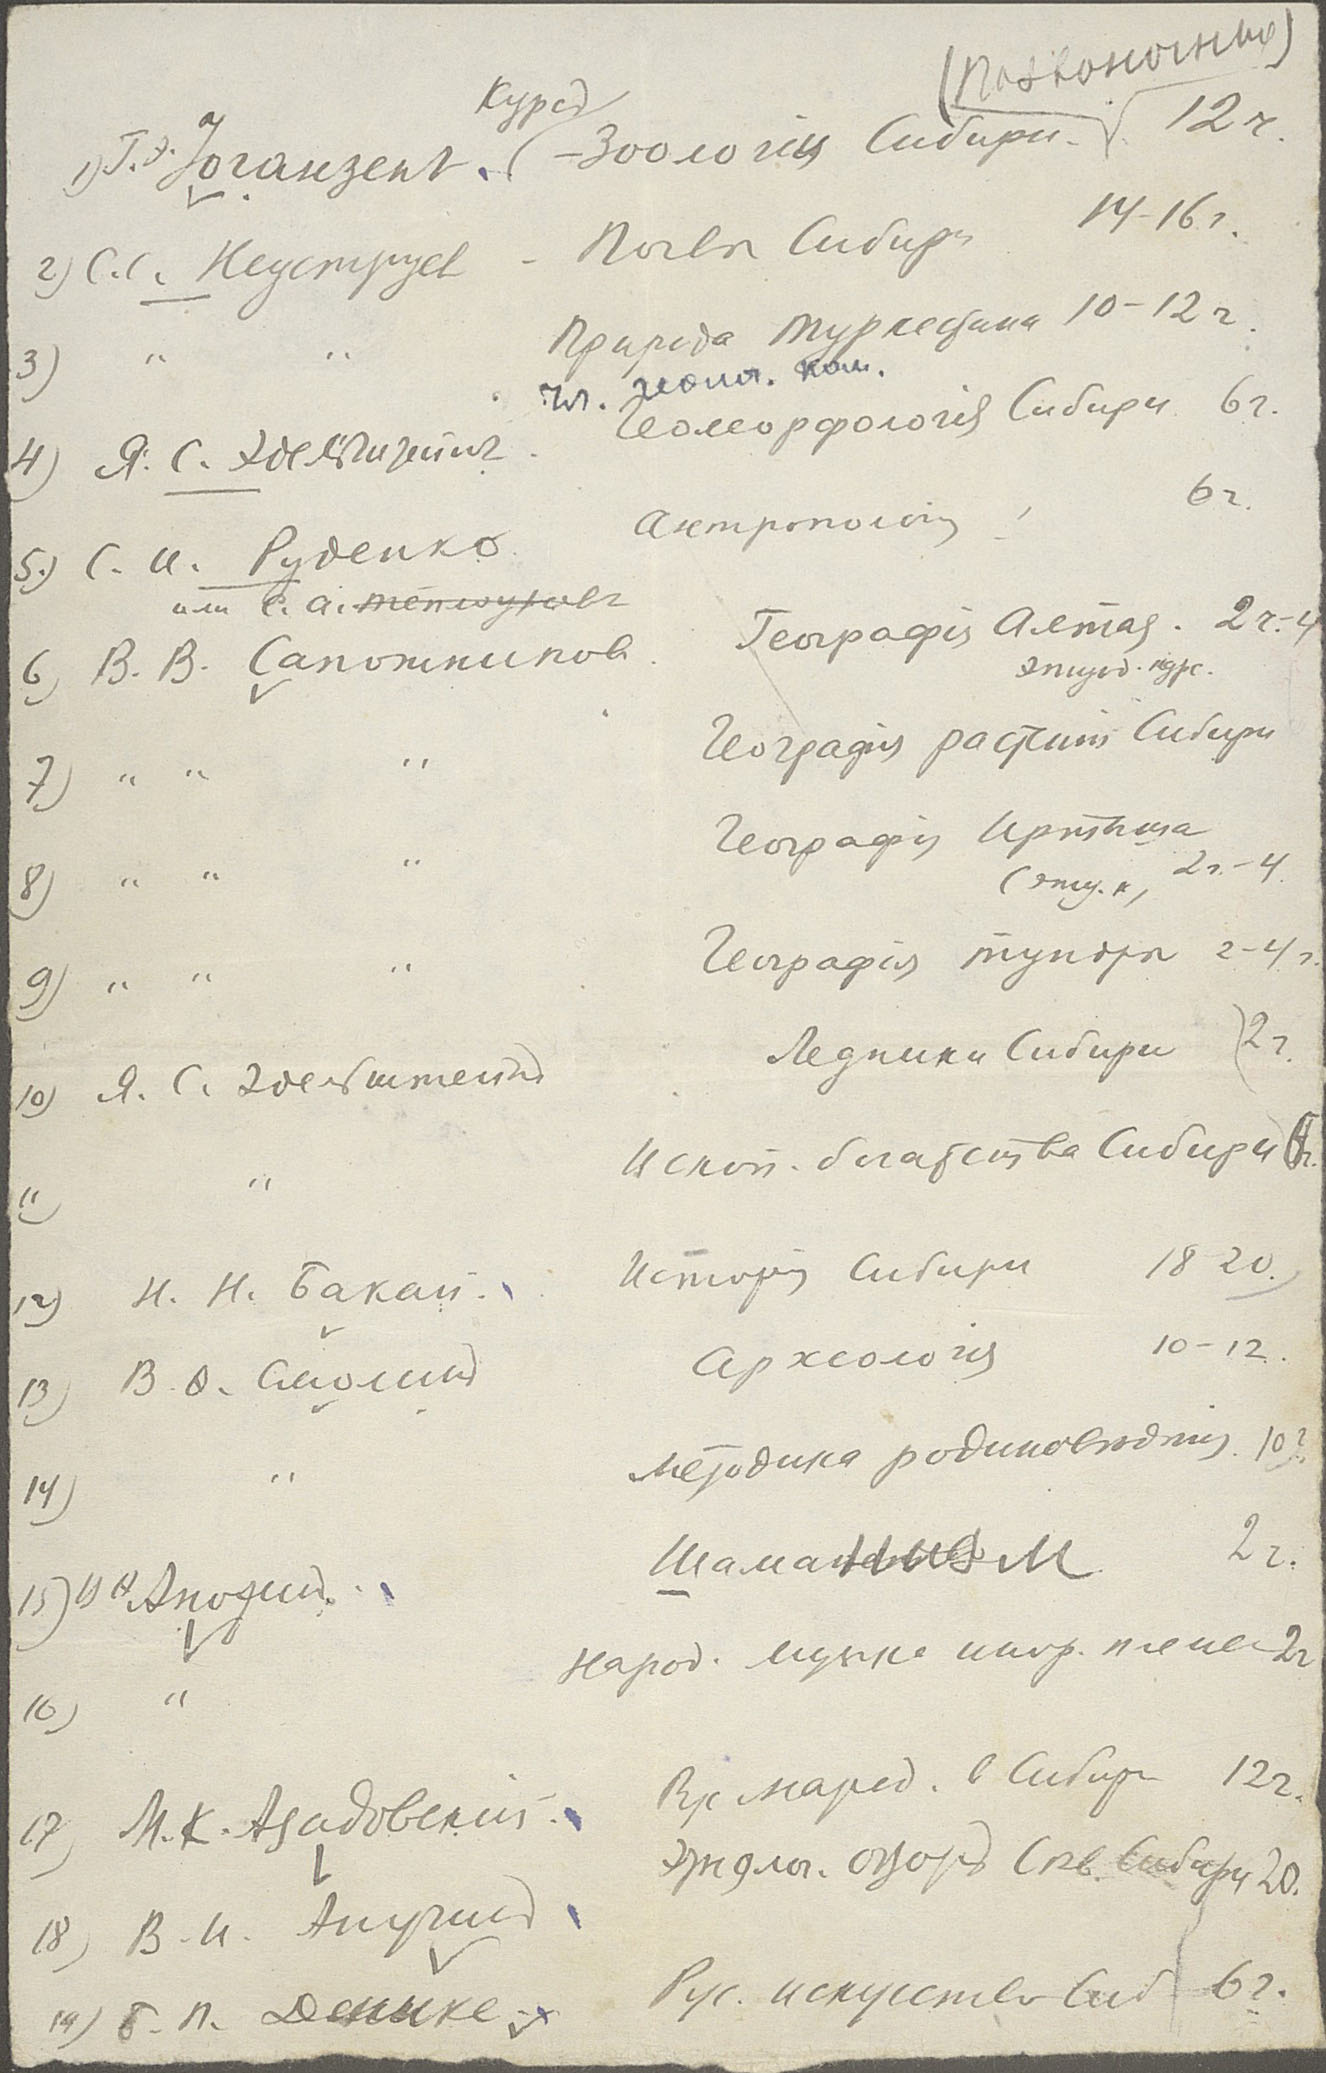 (Позвоночные)
Курсъ
1) Г. Э. Іоганзенъ. – Зоологія Сибири. 12 ч.
2) С. С. Неуструев - Почвы Сибири 14-16 ч.
3) " " Природа Туркестана 10-12 ч.
чл. Геолог. ком.
4) Я. С. Эдельштейнъ. Геоморфологія Сибири 6 ч.
5) С. И. Руденко Антропологія 6 ч.
или С. А. Теплоуховъ
6) В. В. Сапожников. Географія Алтая. 2 ч.-4
эпизод. курс.
7) " " " Географія растеній Сибири
8) " " " Географія Иртыша
(эпиз. к, 2 ч.-4
9) " " " Географія тундры 2-4 ч.
10) Я. С. Эдельштейнъ Ледники Сибири 2 ч.
11) " Ископ. богатства Сибири
12) Н. Н. Бакай. Исторія Сибири 18-20.
13) В. Ф. Смолинъ Археологія 10-12.
14) " Методика родиновѣдѣнія 10 ч.
15) Анохинъ. Шаманизм 2 ч.
16) " Народ. музыка инор. племен 2 ч
17) М. К. Азадовскій. Рус. народ. в Сибири 12 ч.
18) В. И. Анучинъ Этнолог. обзоръ Сѣв. Сибири 20.
19) Б. П. Денике. Рус. искусство Сиб 6 ч.